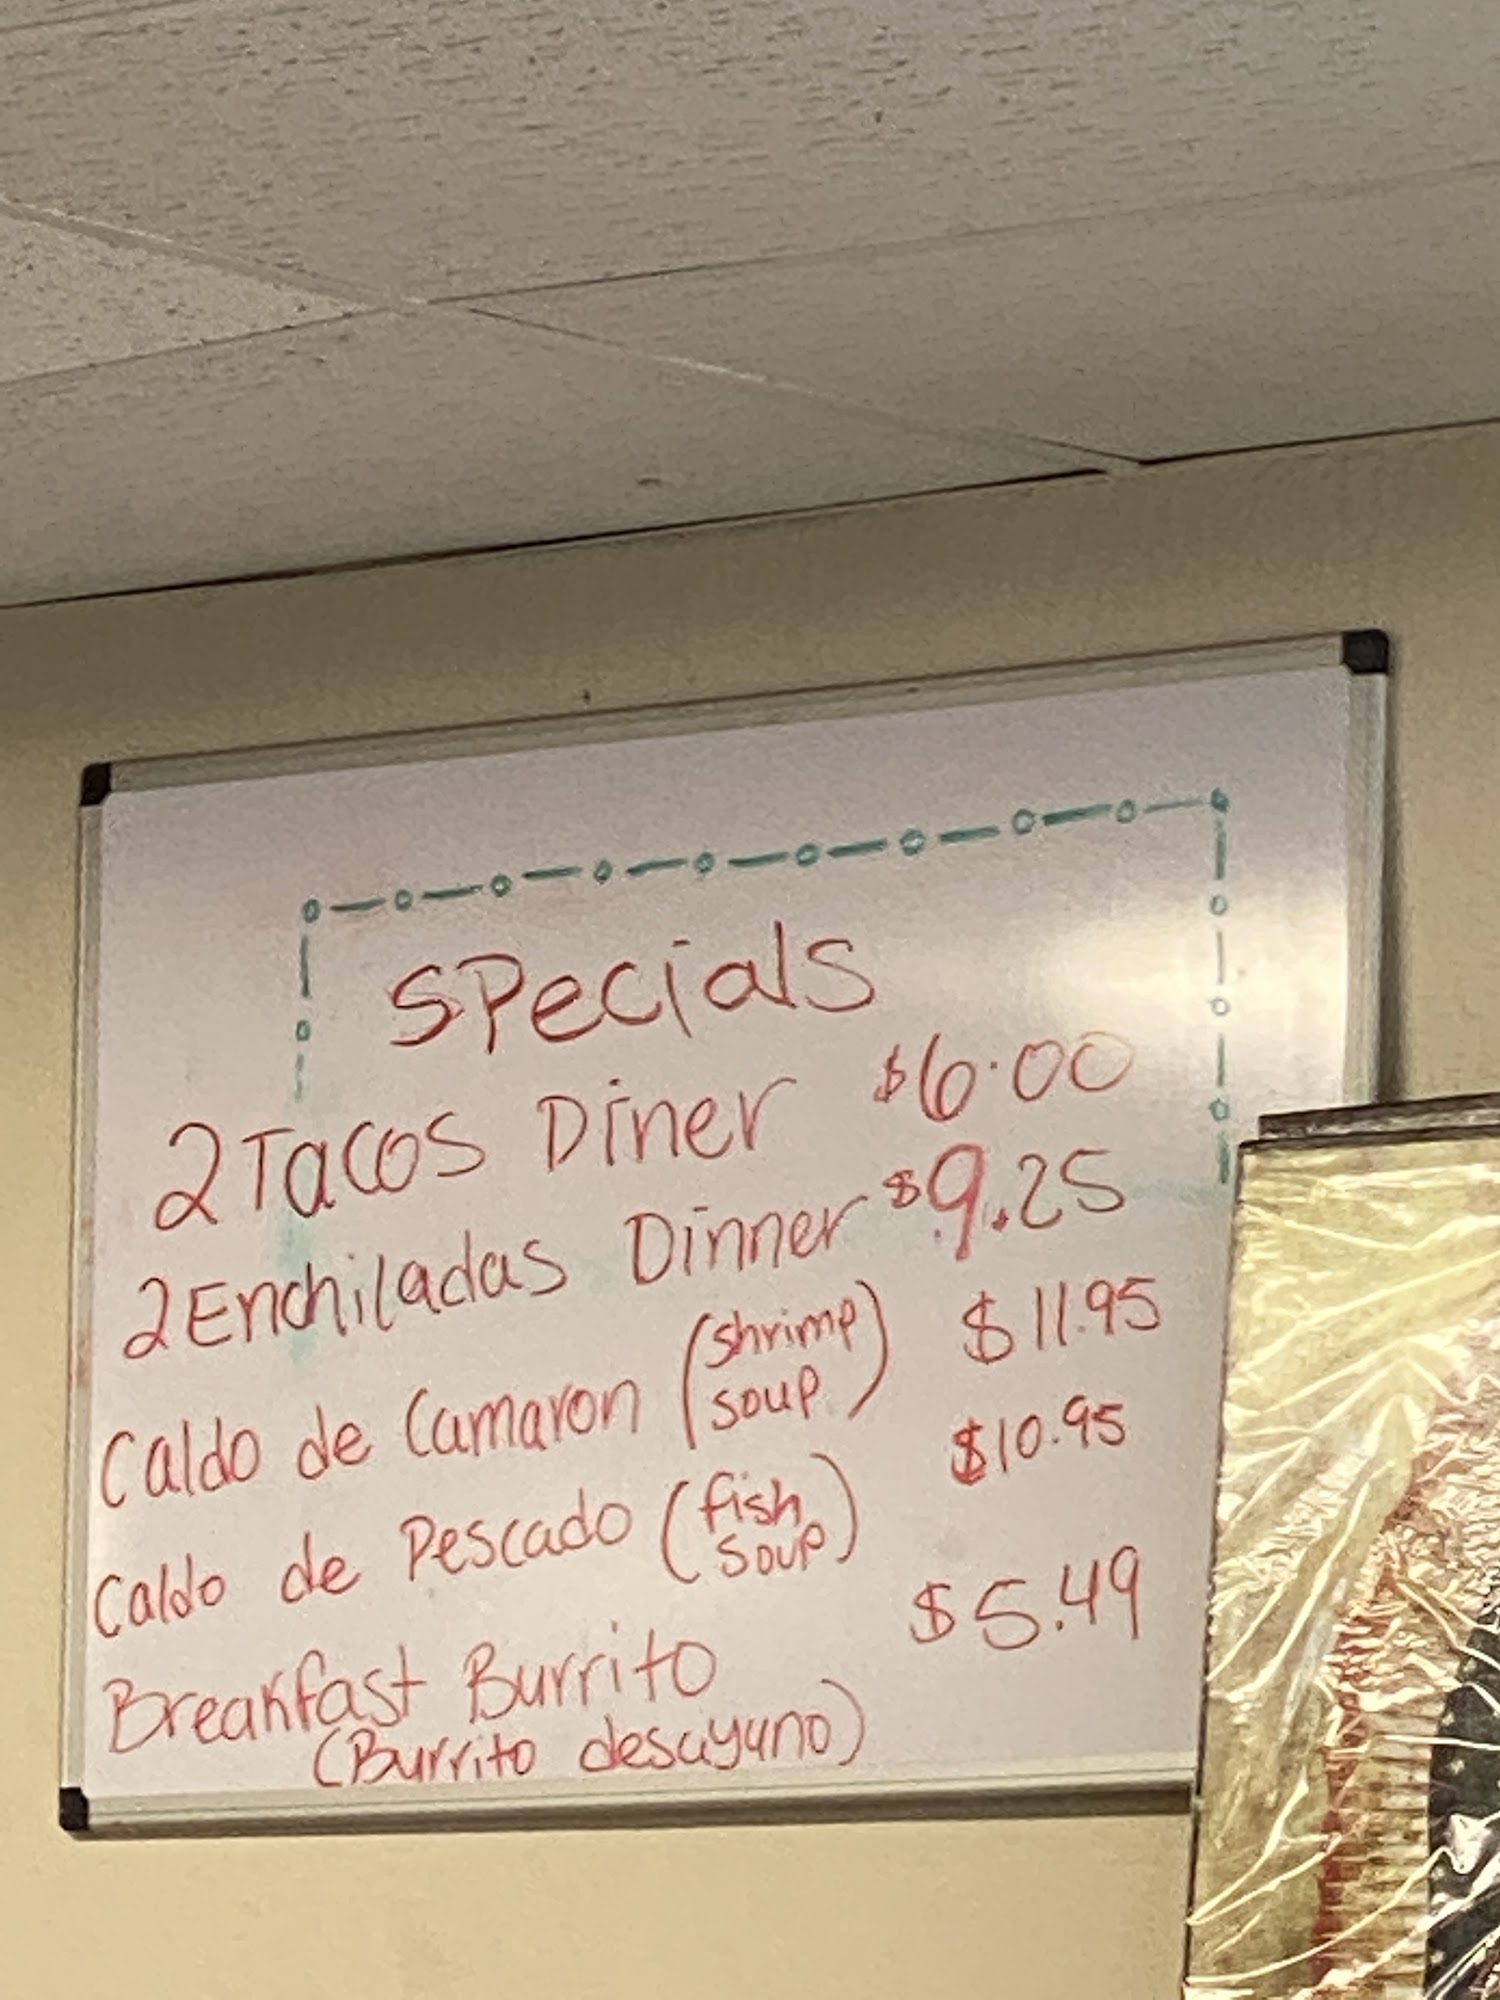 Specials
2 Tacos Diner $6.00
2 Enchiladas Dinner $9.25
Caldo de Camaron (shrimp soup) $11.95
Caldo de Pescado (fish soup) $10.95
Breakfast Burrito $5.49
(Burrito desayuno)